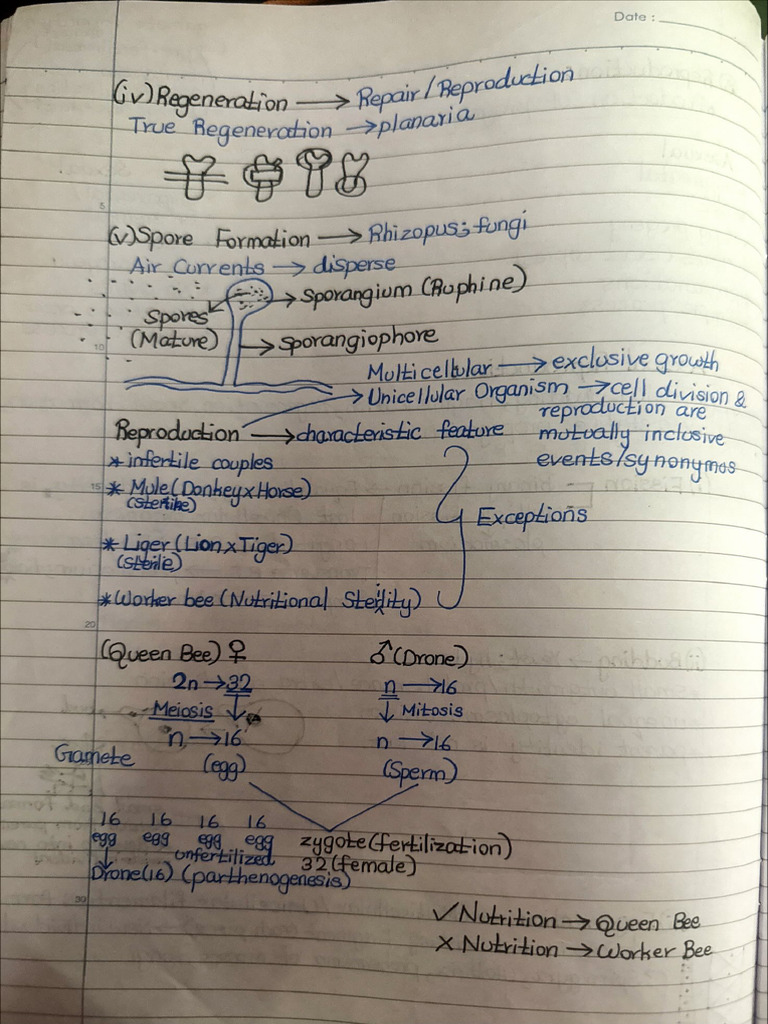 Date :
(iv) Regeneration → Repair/Reproduction
True Regeneration → planaria
5
(v) Spore Formation → Rhizopus; fungi
Air Currents → disperse
Spores → Sporangium (Ruphine)
(Mature)
10
→ sporangiophore
Multicellular → exclusive growth
→ Unicellular Organism → cell division &
reproduction are
mutually inclusive
events/synonymos
Reproduction → characteristic feature
* infertile couples
15
* Mule (Donkey x Horse)
(Sterile)
Exceptions
* Liger (Lion x Tiger)
(Sterile)
* Worker bee (Nutritional Sterility)
20
(Queen Bee) ♀ ♂ (Drone)
2n → 32 n → 16
Meiosis ↓ ↓ Mitosis
n → 16 n → 16
Gamete (egg) (Sperm)
16 16 16 16
egg egg egg egg zygote (fertilization)
unfertilized 32 (female)
Drone (16) (parthenogenesis)
30
✓ Nutrition → Queen Bee
× Nutrition → Worker Bee